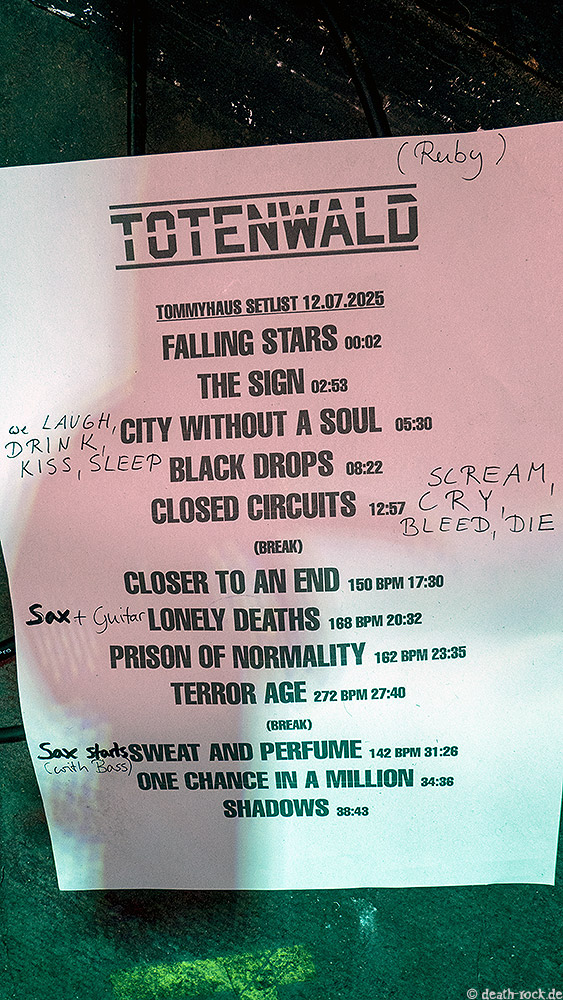 (Ruby)
TOTENWALD
TOMMYHAUS SETLIST 12.07.2025
FALLING STARS 00:02
THE SIGN 02:53
we LAUGH,
DRINK,
KISS, SLEEP
CITY WITHOUT A SOUL 05:30
BLACK DROPS 08:22
SCREAM,
CRY,
BLEED, DIE
CLOSED CIRCUITS 12:57
(BREAK)
CLOSER TO AN END 150 BPM 17:30
Sax + Guitar LONELY DEATHS 168 BPM 20:32
PRISON OF NORMALITY 162 BPM 23:35
TERROR AGE 272 BPM 27:40
(BREAK)
Sax starts SWEAT AND PERFUME 142 BPM 31:26
(with Bass)
ONE CHANCE IN A MILLION 34:36
SHADOWS 38:43
© death-rock.de